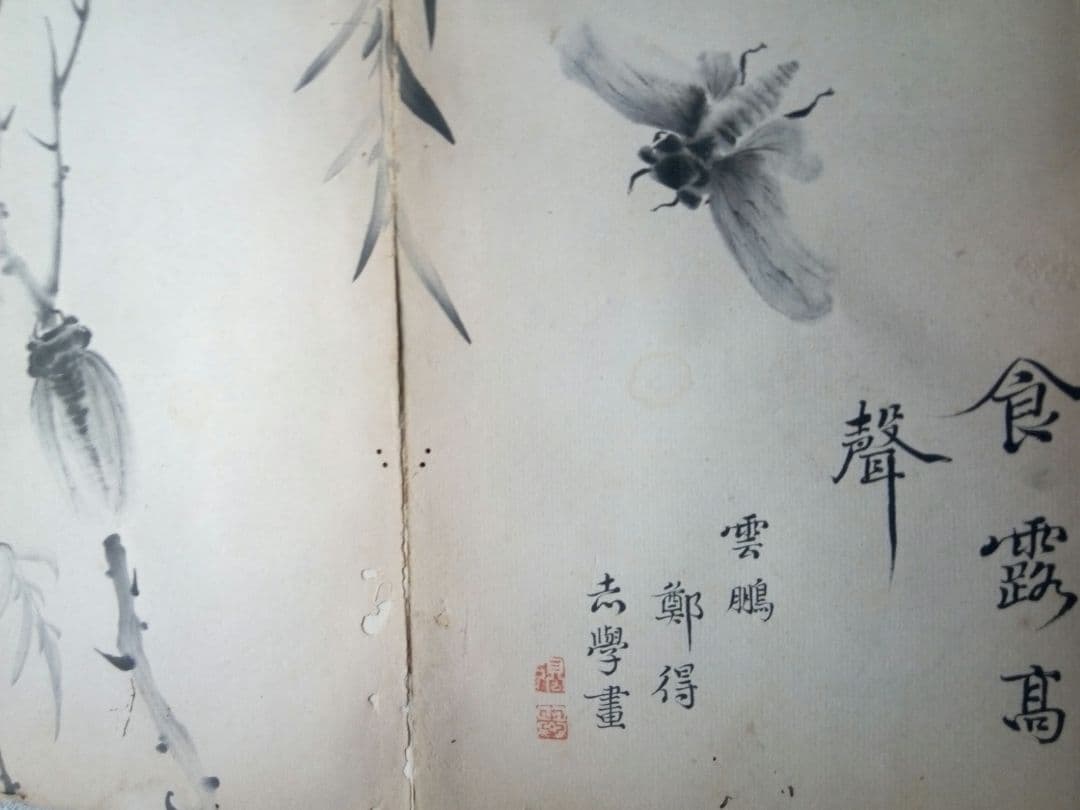 食露高
聲
雲鵬
鄭得
志學畫